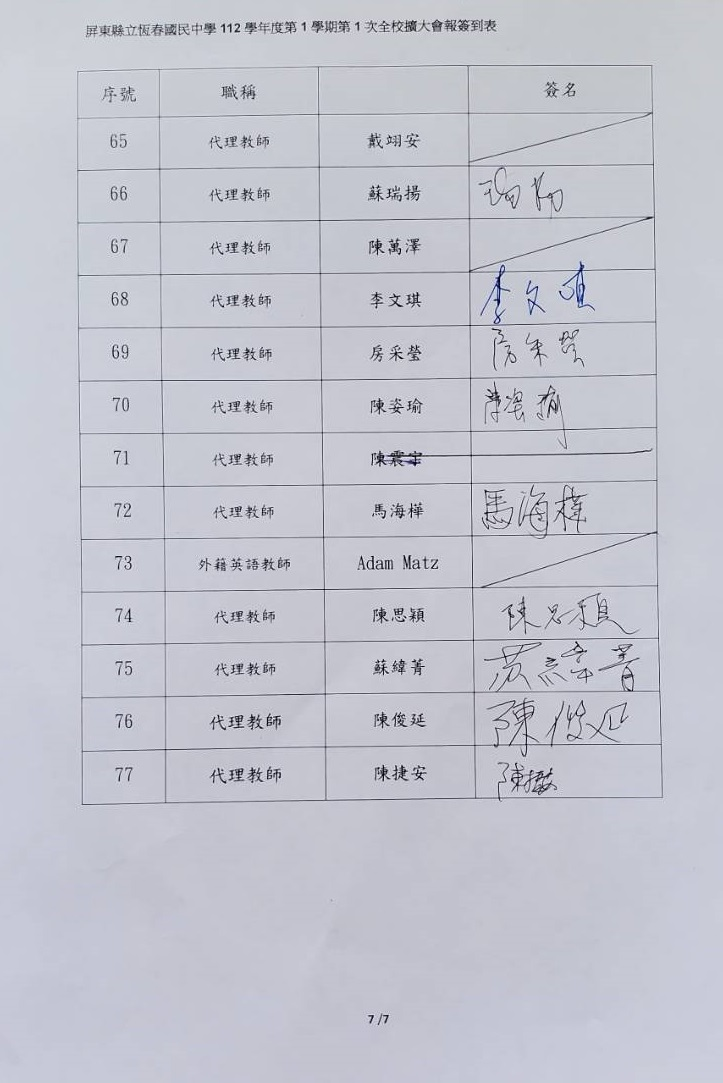 屏東縣立恆春國民中學 112 學年度第 1 學期第 1 次全校擴大會報簽到表
序號 職稱 簽名
65 代理教師 戴翊安
66 代理教師 蘇瑞揚 瑞揚
67 代理教師 陳萬澤
68 代理教師 李文琪 李文琪
69 代理教師 房采瑩 房采瑩
70 代理教師 陳姿瑜 陳姿瑜
71 代理教師 陳震宇
72 代理教師 馬海樺 馬海樺
73 外籍英語教師 Adam Matz
74 代理教師 陳思穎 陳思穎
75 代理教師 蘇緯菁 苏緯菁
76 代理教師 陳俊延 陳俊延
77 代理教師 陳捷安 陳捷安
7 /7